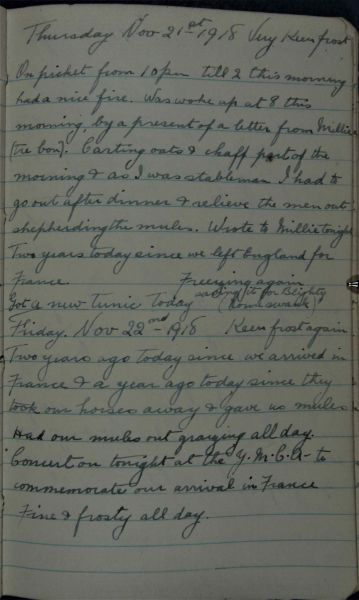 Thursday Nov 21st 1918 Very Keen frost
On picket from 10pm till 2 this morning
had a nice fire. Was woke up at 8 this
morning, by a present of a letter from Millie
(tre bon). Carting oats & chaff part of the
morning & as I was stableman I had to
go out after dinner & relieve the men out
shepherding the mules. Wrote to Millie tonight
Two years today since we left England for
France. Freezing again
Got a new Tunic Today saving it for Blighty
(Some swank)
Friday. Nov 22nd - 1918 Keen frost again
Two years ago today since we arrived in
France & a year ago today since they
took our horses away & gave us mules
Had our mules out grazing all day.
Concert on tonight at the Y.M.C.A- to
commemorate our arrival in France
Fine & frosty all day.